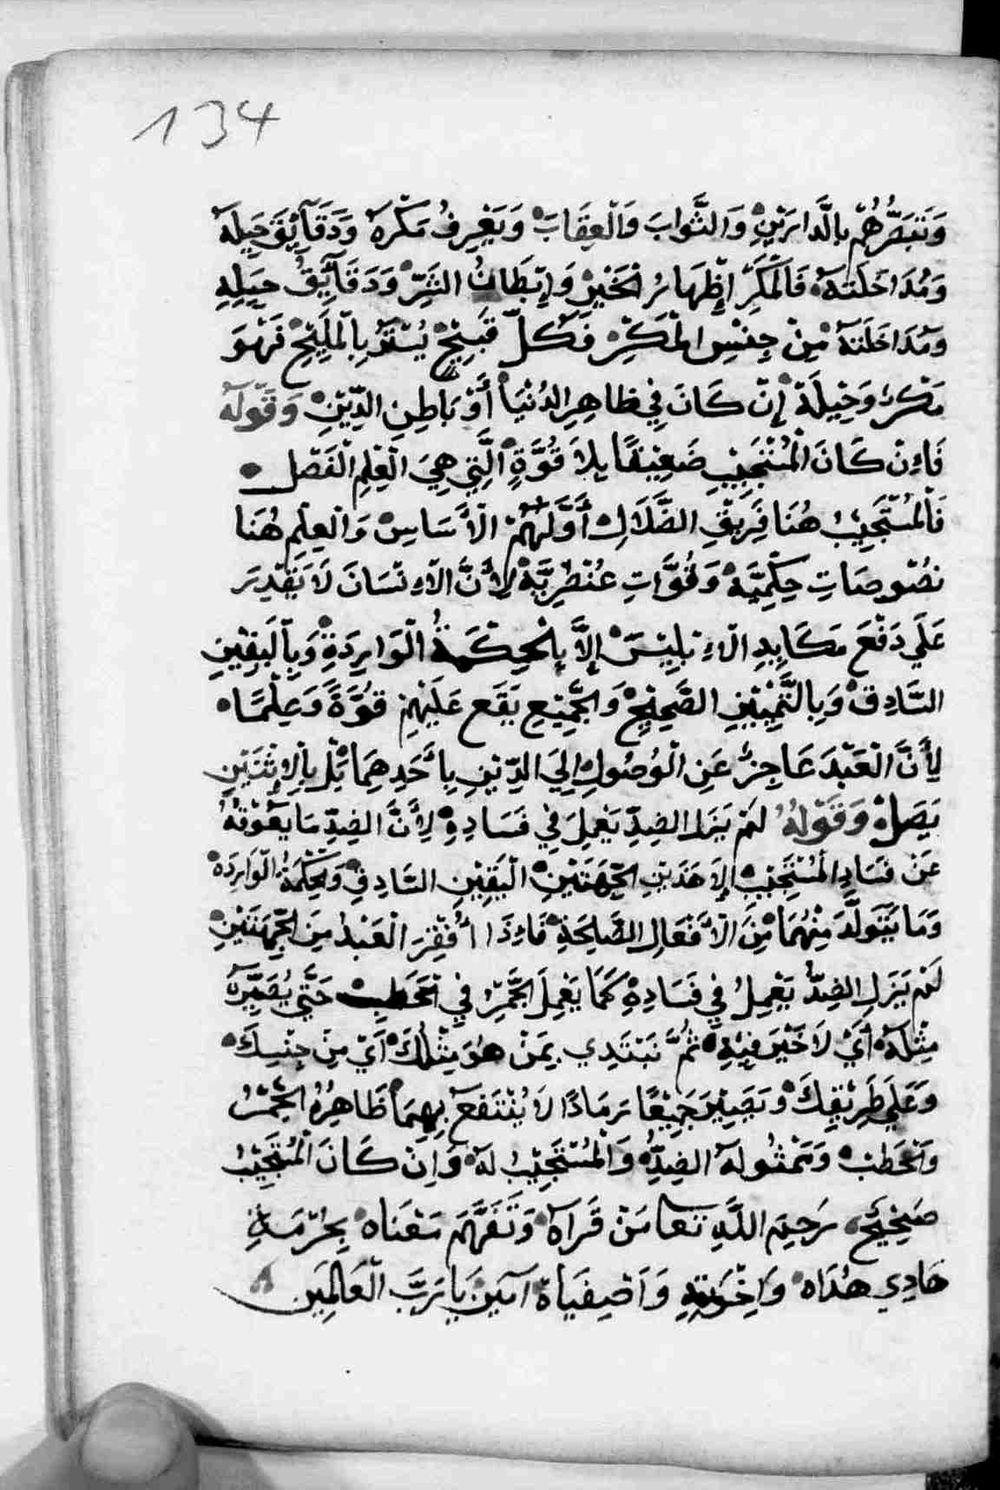 134
وَتَبَصُّرُهُمْ بِالَّدارَيْنِ وَالثَّوابَ وَالْعِقَابَ وَيَعْرِفُ مَكْرَهُ وَدَقَآيْقَ حِيَلَهُ
وَمُدَاخَلَتَهُ فَالْمَكْرُ إِظْهَارُ الْخَيْرِ وَإِبْطَانُ الشَّرِّ وَدَقَآيِقُ حِيَلِهِ
وَمُدَاخَلَتَهُ مِنْ جِنْسِ الْمَكْرِ فَكُلّ قَبِيْحٍ يُسْتَرُ بِالْمَلِيْحِ فَهْوَ
مَكْرٌ وَحِيْلَةٌ إِنْ كَانَ فِي ظَاهِرِ الدُنْيَا أَوْ بَاطِنِ الدِّيْنِ وَقَوْلَهُ
فَاِنْ كَانَ الْمُسْتَجِيْبِ ضَعِيْفًا بِلَا قُوَّةٍ الَّتِي هِيَ الْعِلْمِ الْفَضْل
فَالْمُسْتَجِيْبُ هُنَا فَرِيْقِ الضَّلَالِ أَوَّلَهُمْ الْأَسَاسِ وَالْعِلْمِ هُنَا
نُصُوصَاتٍ حِكْمِيَّةٍ وَقُوَّاتٍ عُنْصُرِيَّةٍ لِأَنَّ الْاِنْسَانَ لَا يَقْدِرَ
عَلَي دَفْعَ مَكَايِدِ الْاِبْلِيْسَ إِلَّا بِالْحِكْمَةِ الْوَارِدَةِ وَبِالْيَقِيْنِ
الصَّادِقْ وَبِالتَّمْيِيْزِ الصَّحِيْحِ وَالْجَمِيْعِ يَقَع عَلَيْهِمْ قُوَّةً وَعِلْمًا
لِأَنَّ الْعَبْدَ عَاجِزٌ عَنِ الْوُصُولِ إِلَي الدِّيْنِ بِأَحَدِهِمَا بَلْ بِالْاِثْنَيْنِ
يَصِلْ وَقَوْلُهُ لَمْ يَزَلِ الضِدِّ يَعْمِلَ فِي فَسَادِهِ لِأَنَّ الضِدِّ مَا يَعُوْقَهُ
عَنْ فَسَادِ الْمُسْتَجِيْبِ إِلَّا هَذَيْنِ الْجِهَتَيْنِ الْيَقِيْنِ الصَّادِقِ وَالْحِكْمَةُ الْوَارِدَةُ
وَمَا يَتَوَلَّدَ مِنْهُمَا مِنَ الْأَفْعَالِ الصَّالِحَةِ فَاِذَا أُفْقِرَ الْعَبْدُ مِنَ الْجِهَتَيْنِ
لَمْ يَزَلِ الضِدُّ يَعْمِلُ فِي فَسَادِهِ كَمَا يَعْمِلَ الْجَمْرِ فِي الْحَطَبِ حَتَّي يُصَيِّرَهُ
مِثْلَهُ أَيْ لَا خَيْرَ فِيْهِ ثُمَّ نَبْتَدِي بِمَنْ هُوَ مِثْلُكَ أَيْ مِنْ جِنْسِكَ
وَعَلَي طَرِيْقِكَ وَيَصِيْرَ جَمِيْعًا رَمَادًا لَا يُنْتَفَعَ بِهِمَا ظَاهِرُهُ الْجَمْرُ
وَالْحَطَبْ وَمَمْثُولَهُ الضِدُّ وَالْمُسْتَجِيْبُ لَهُ وَاِنْ كَانَ الْمُسْتَجِيْبُ
صَحِيْحٍ رَحِمَ اللَّهِ تَعَا مَنْ قَرَأَهُ وَتَفَهَّمَ مَعْنَاهُ بِحُرْمَةِ
هَادِي هُدَاهُ وَاِخْوَتِهِ وَاَصْفِيَاهُ اَمِيْنَ يَا رَبَّ الْعَالَمِيْن